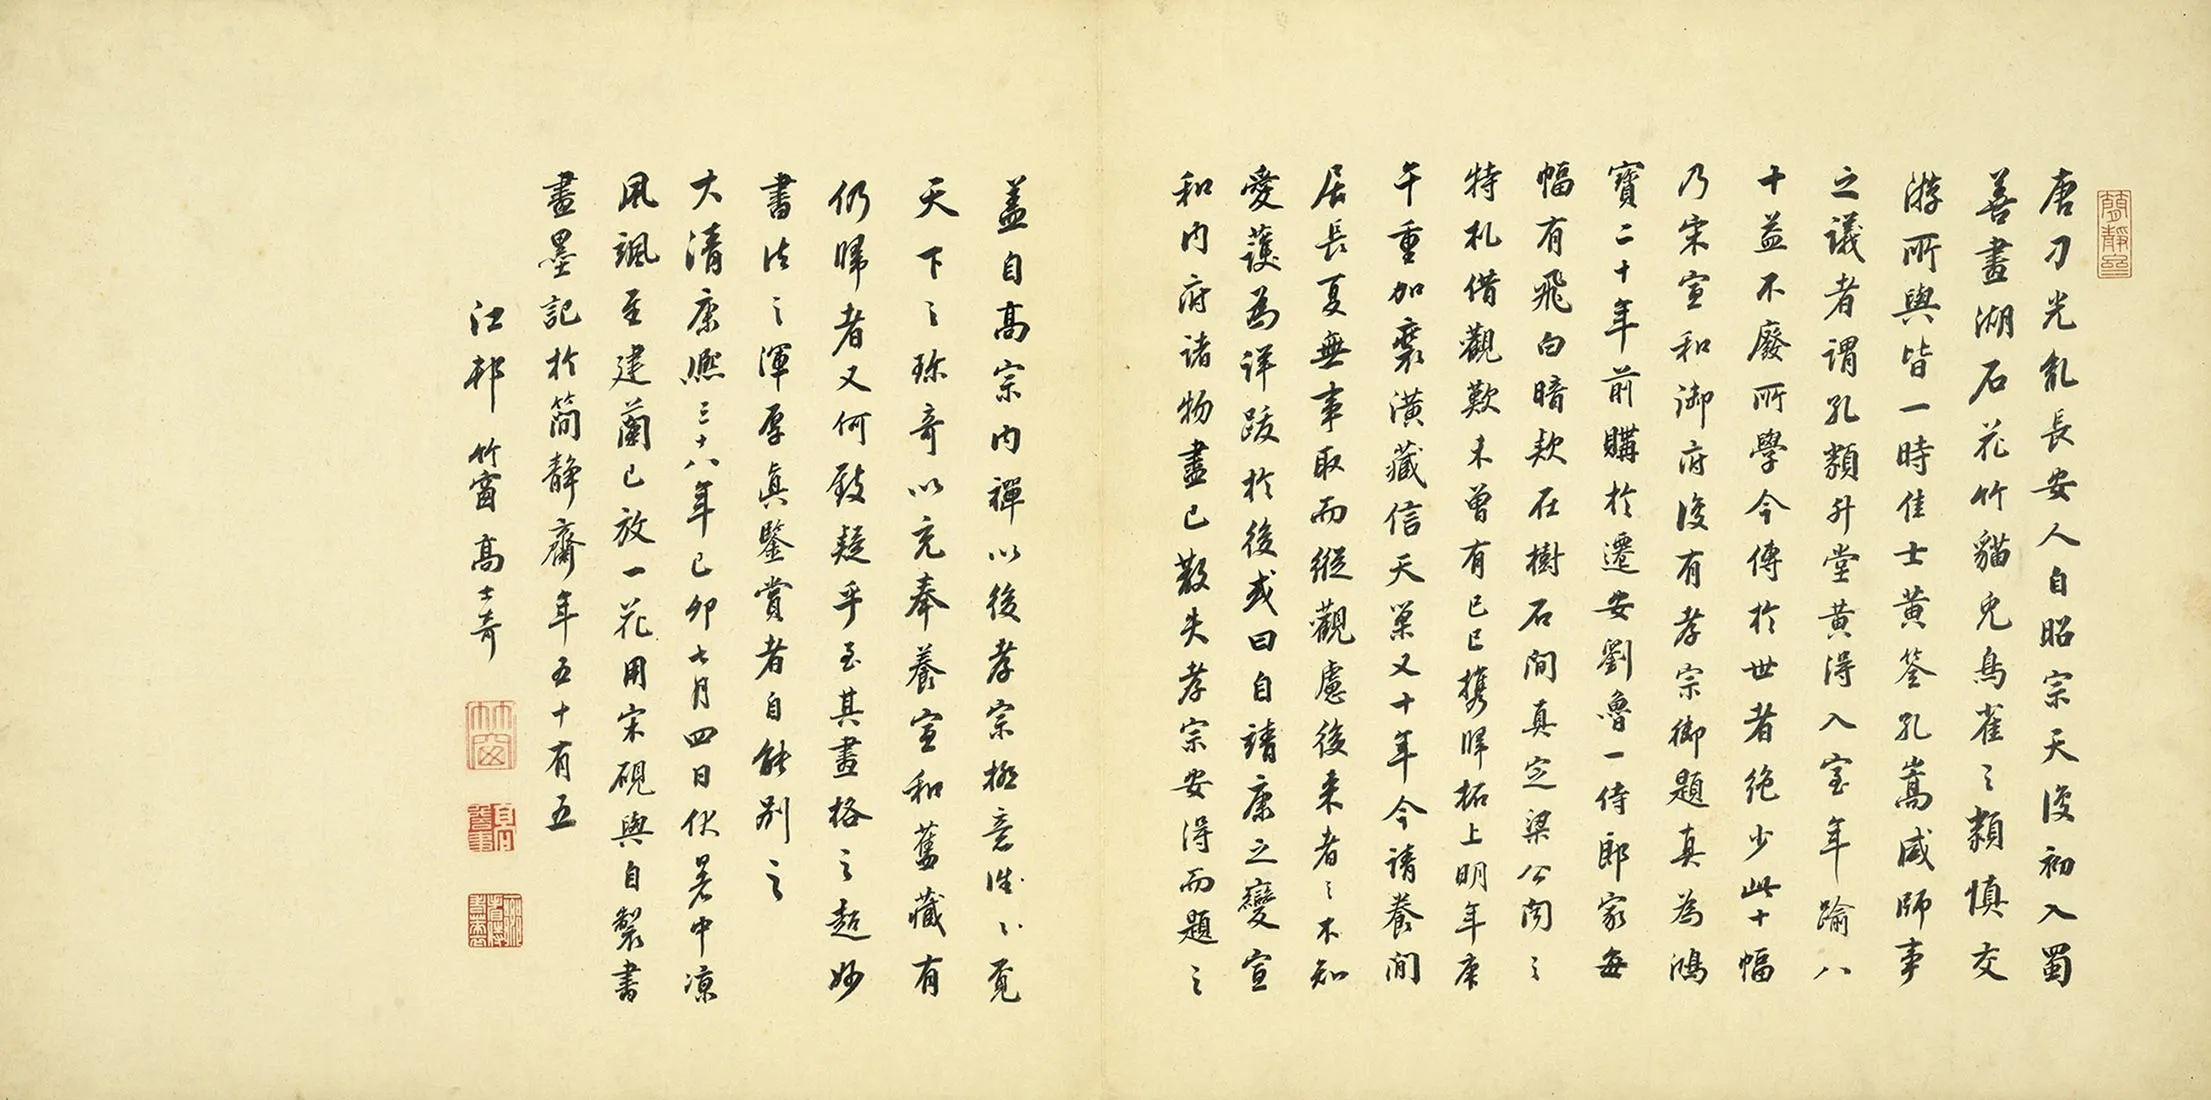 簡靜齋
唐刁光胤長安人自昭宗天復初入蜀
善畫湖石花竹貓兔鳥雀之類慎交
游所與皆一時佳士黃筌孔嵩咸師事
之議者謂孔類升堂黃得入室年踰八
十益不廢所學今傳於世者絕少此十幅
乃宋宣和御府後有孝宗御題真為鴻
寶二十年前購於遷安劉魯一侍郎家每
幅有飛白暗款在樹石間真定梁公聞之
特札借觀歎未曾有己巳攜歸柘上明年庚
午重加裝潢藏信天巢又十年今請養閒
居長夏無事取而縱觀慮後來者之不知
愛護為詳跋於後或曰自靖康之變宣
和內府諸物盡已散失孝宗安得而題之
蓋自高宗內禪以後孝宗極意承歡覓
天下之珍奇以充奉養宣和舊藏有
仍歸者又何致疑乎至其畫格之超妙
書法之渾厚真鑒賞者自能別之
大清康熙三十八年己卯七月四日伏暑中涼
風颯至建蘭已放一花用宋硯與自製書
畫墨記於簡靜齋年五十有五
江邨竹窗高士奇
竹窗